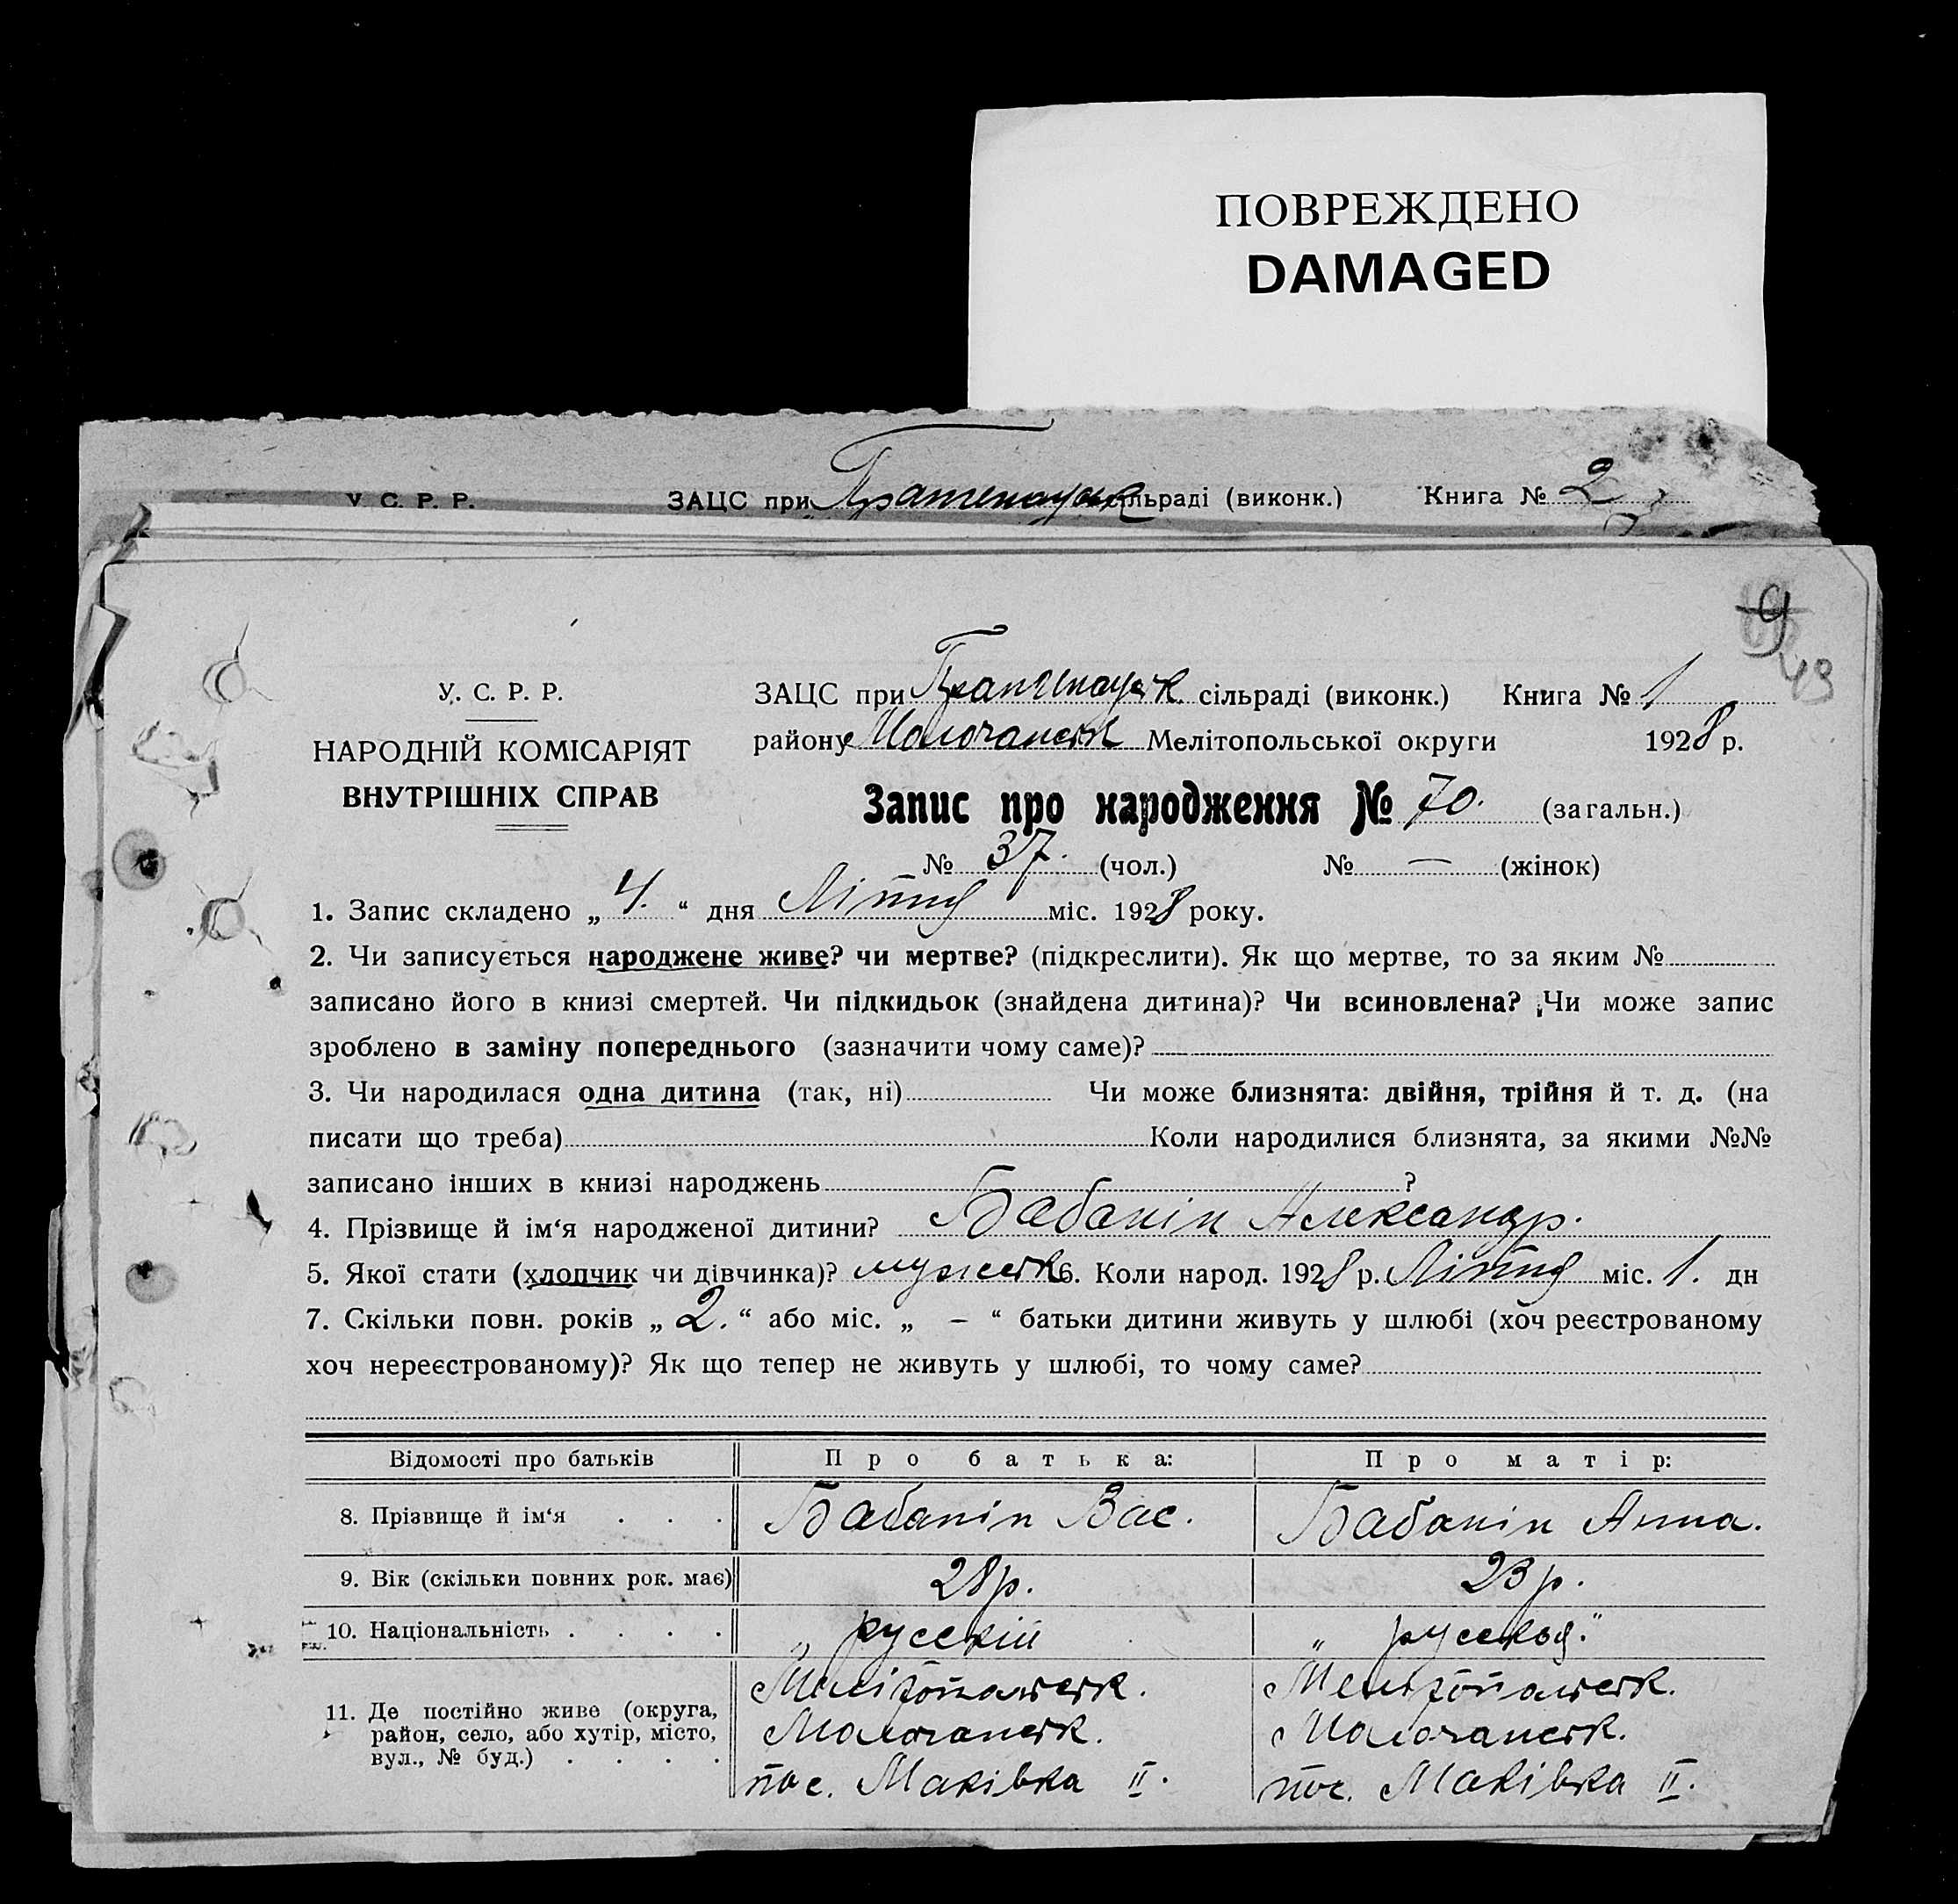 ПОВРЕЖДЕНО
DAMAGED
У. С. Р. Р. ЗАЦС при сільраді (виконк.) Книга № 2
9
43
У. С. Р. Р. ЗАЦС при сільраді (виконк.) Книга № 1
НАРОДНІЙ КОМІСАРІЯТ району Молочанськ Мелітопольської округи 1928 р.
ВНУТРІШНІХ СПРАВ Запис про народження № 70. (загальн.)
№ 37. (чол.) № — (жінок)
1. Запис складено „ 4. “ дня Ліпня міс. 1928 року.
2. Чи записується народжене живе? чи мертве? (підкреслити). Як що мертве, то за яким №
записано його в книзі смертей. Чи підкидьок (знайдена дитина)? Чи всиновлена? Чи може запис
зроблено в заміну попереднього (зазначити чому саме)?
3. Чи народилася одна дитина (так, ні) Чи може близнята: двійня, трійня й т. д. (на
писати що треба) Коли народилися близнята, за якими №№
записано інших в книзі народжень ?
4. Прізвище й ім‘я народженої дитини? Бабанін Александр.
5. Якої стати (хлопчик чи дівчинка)? мужеск 6. Коли народ. 1928 р. Ліпня міс. 1. дн
7. Скільки повн. років „ 2. “ або міс. „ – “ батьки дитини живуть у шлюбі (хоч реєстрованому
хоч нереєстрованому)? Як що тепер не живуть у шлюбі, то чому саме?
Відомості про батьків Про батька: Про матір:
8. Прізвище й ім‘я . . . Бабанін Вас. Бабанін Анна.
9. Вік (скільки повних рок. має) 28 р. 23 р.
10. Національність . . . . „ русскій „ русская.“
11. Де постійно живе (округа, Мелітопольськ. Мелітопольськ.
район, село, або хутір, місто, Молочанськ. Молочанськ.
вул., № буд.) . . . . пос. Маківка II. пос. Маківка II.